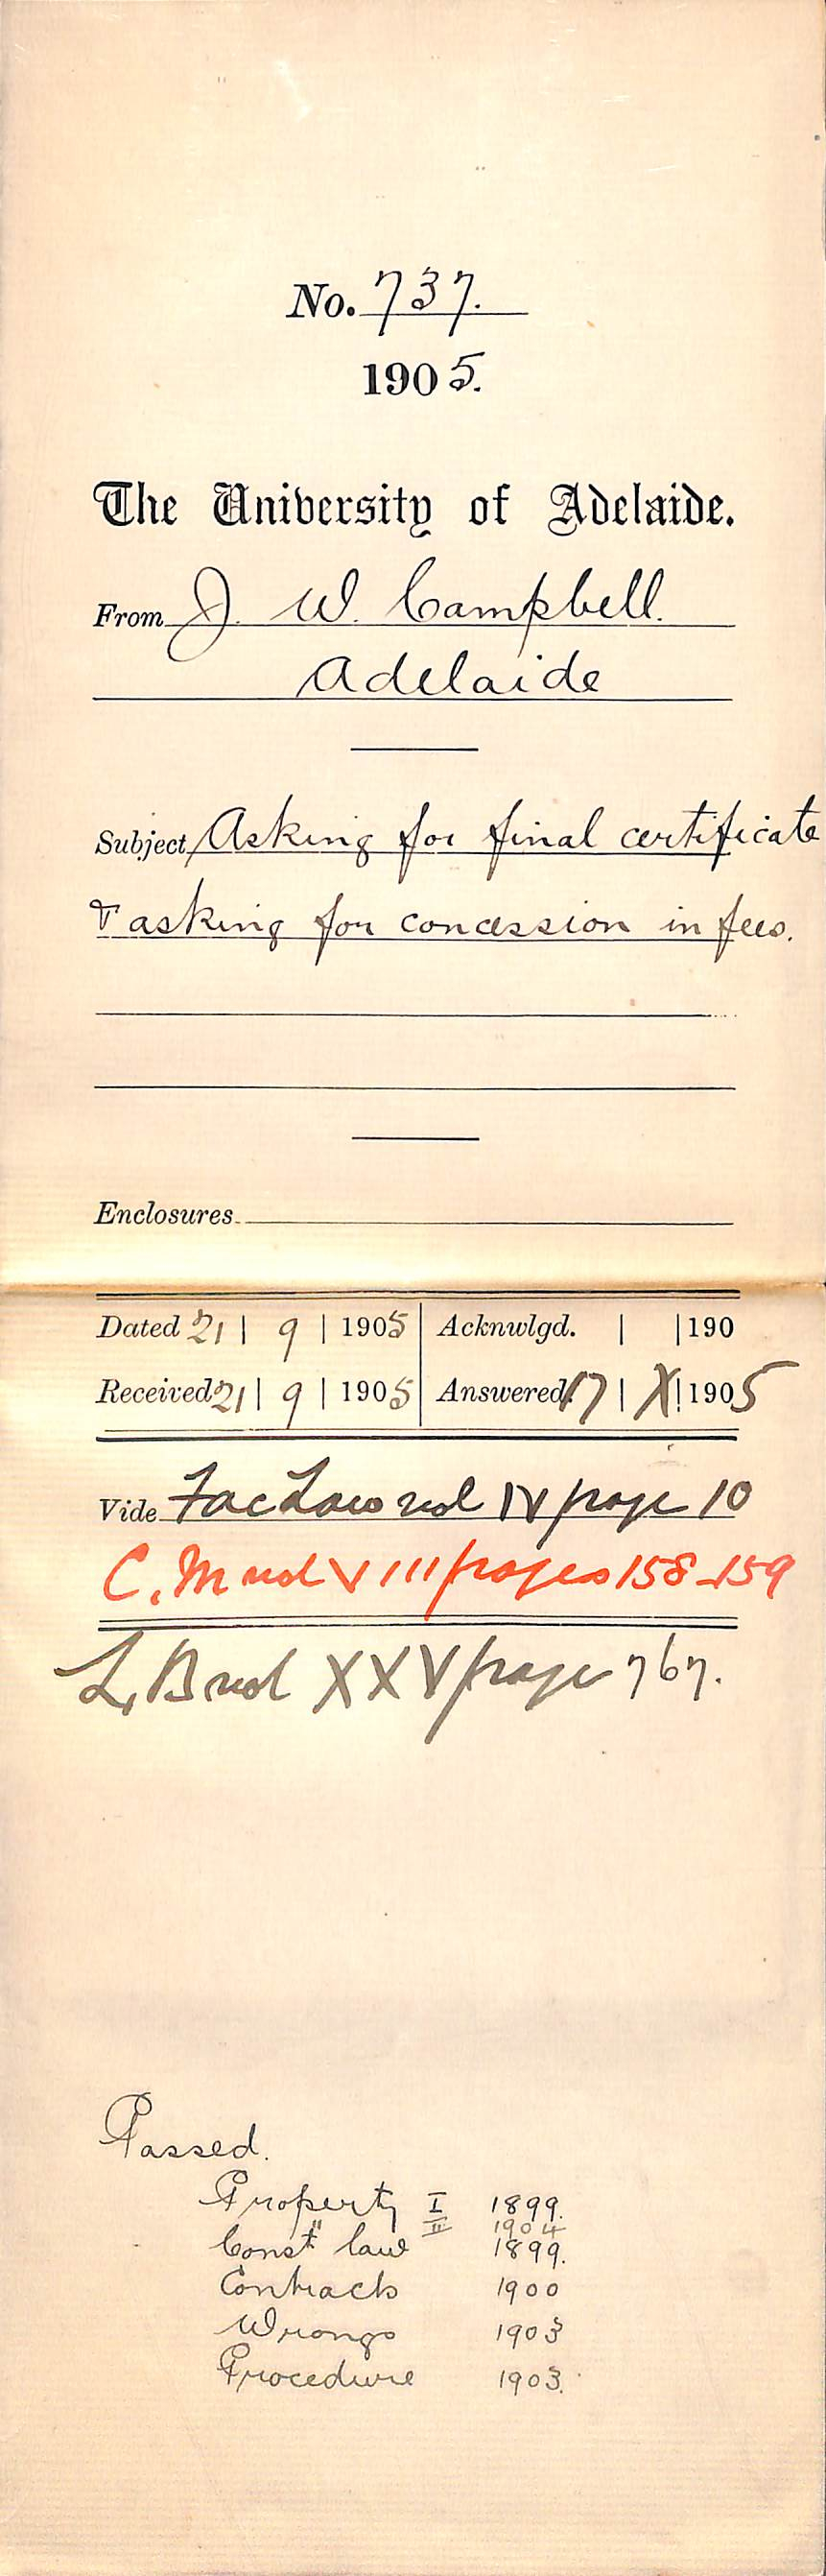 No. 737.
1905.
The University of Adelaide.
From J. W. Campbell.
Adelaide
Subject Asking for final certificate
& asking for concession in fees.
Enclosures.
Dated 21 | 9 | 1905 Acknwlgd. | | 190
Received 21 | 9 | 1905 Answered 17 | X | 1905
Vide Fac Law vol IV page 10
C. M vol VIII pages 158-159
L, B vol XXV page 767.
Passed.
Property I 1899.
" II 1904
Const law 1899.
Contracts 1900
Wrongs 1903
Procedure 1903.